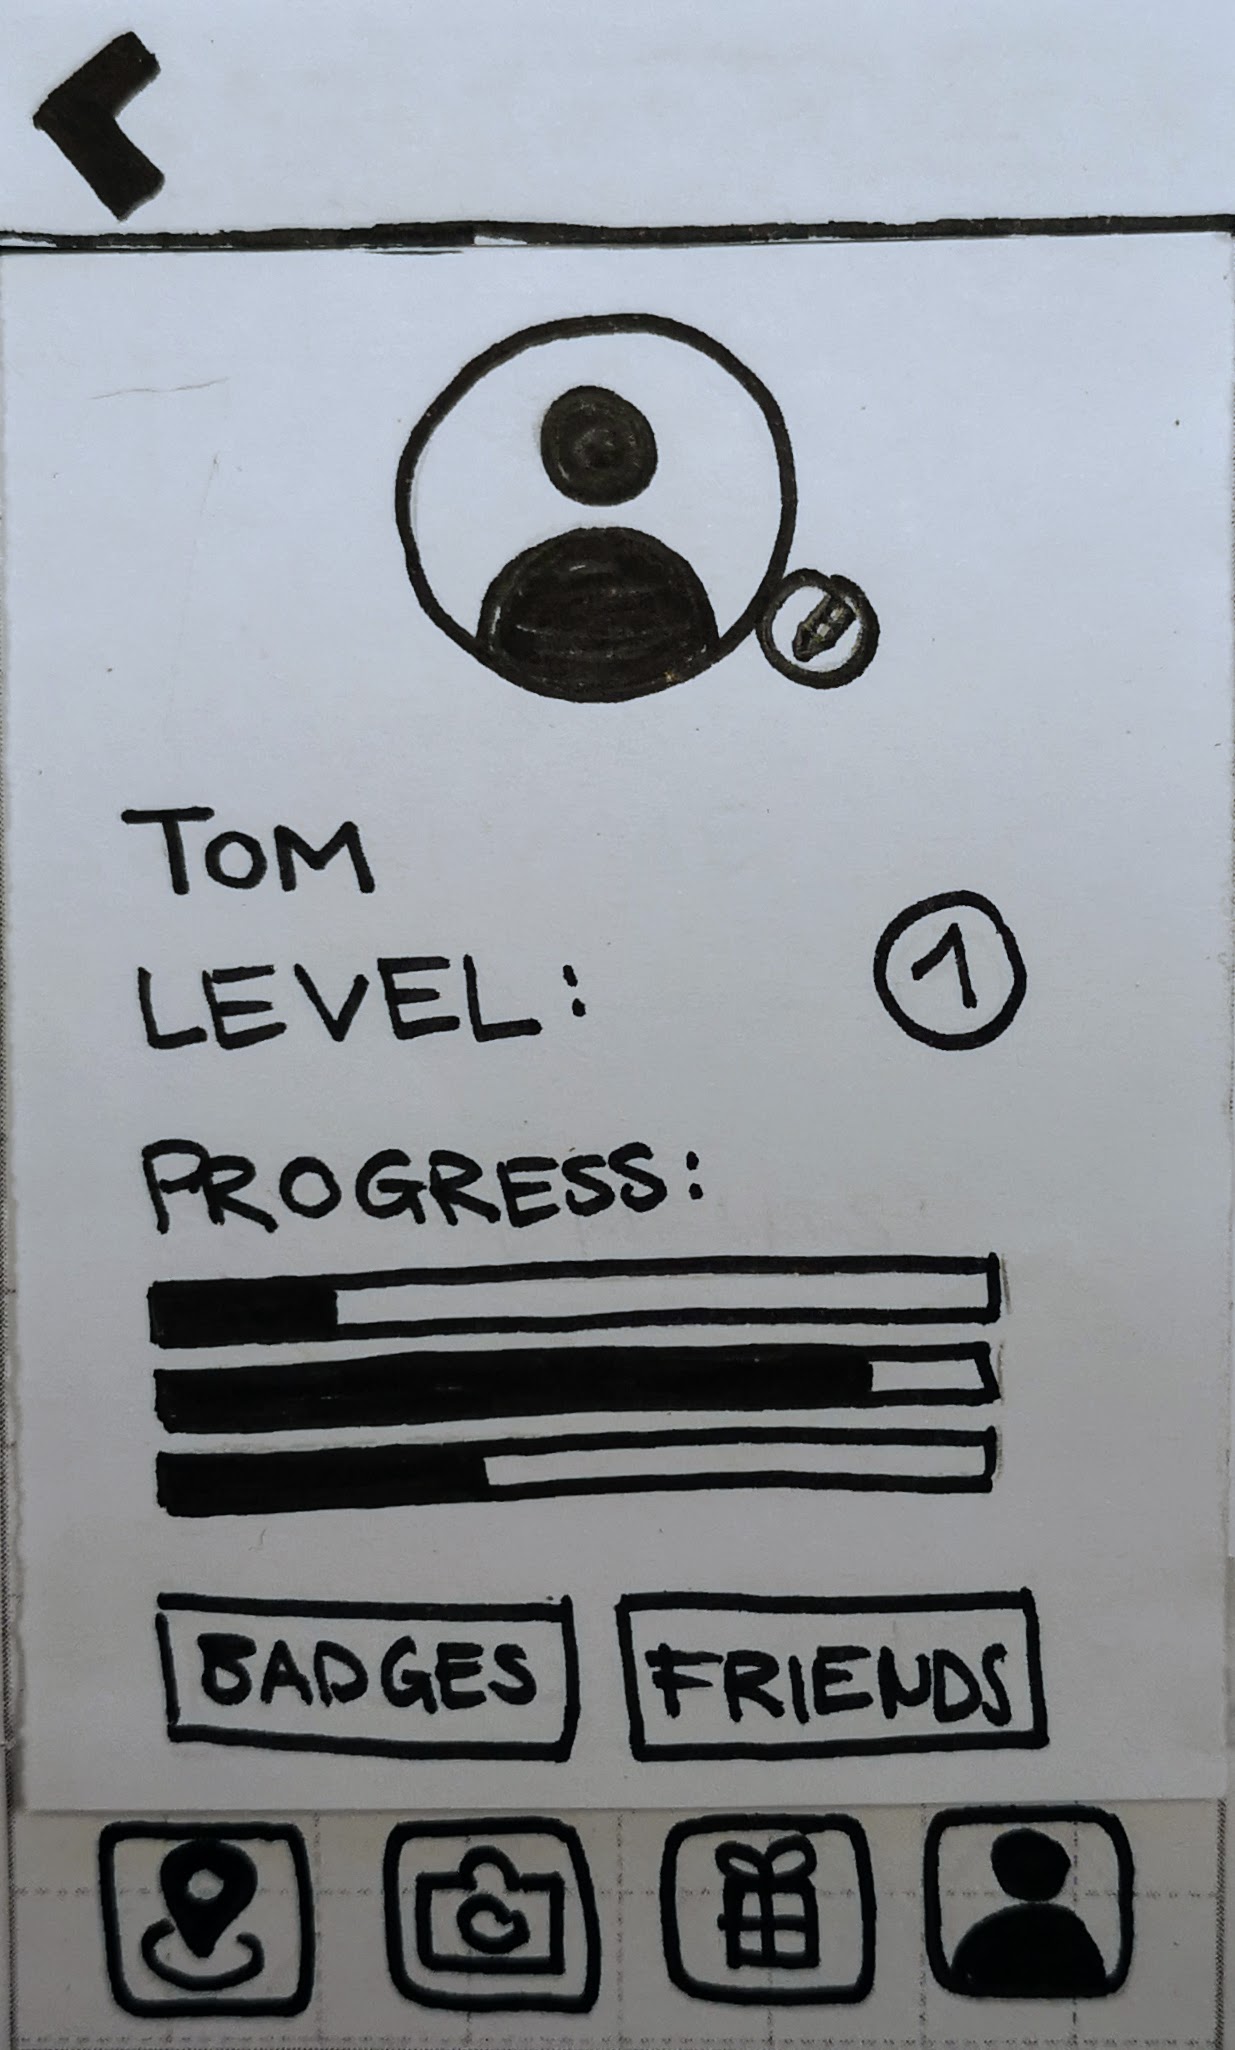 TOM
LEVEL: 1
PROGRESS:
BADGES FRIENDS